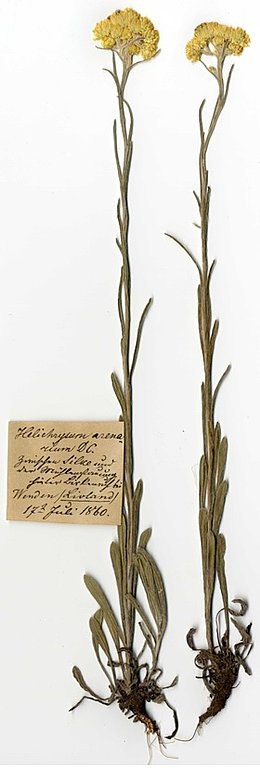 Helichrysum arena-
rium DC.
Zwischen Silke und
der
hinter bei
Wenden (Livland)
17ᵗ Juli 1860.